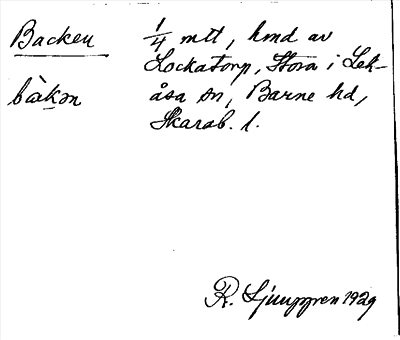 Backen 1/4 mtt, hmd av
Lockatorp, Stora i Lek-
bàkən åsa sn, Barne hd,
Skarab. l.
R. Ljunggren 1929